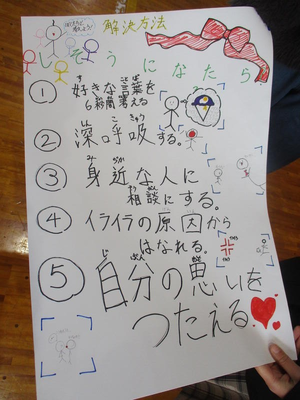 解決方法
しそうになたら
① 好きな言葉を
6秒間考える
② 深呼吸する。
③ 身近な人に
相談にする。
④ イライラの原因から
はなれる。
⑤ 自分の思いを
つたえる